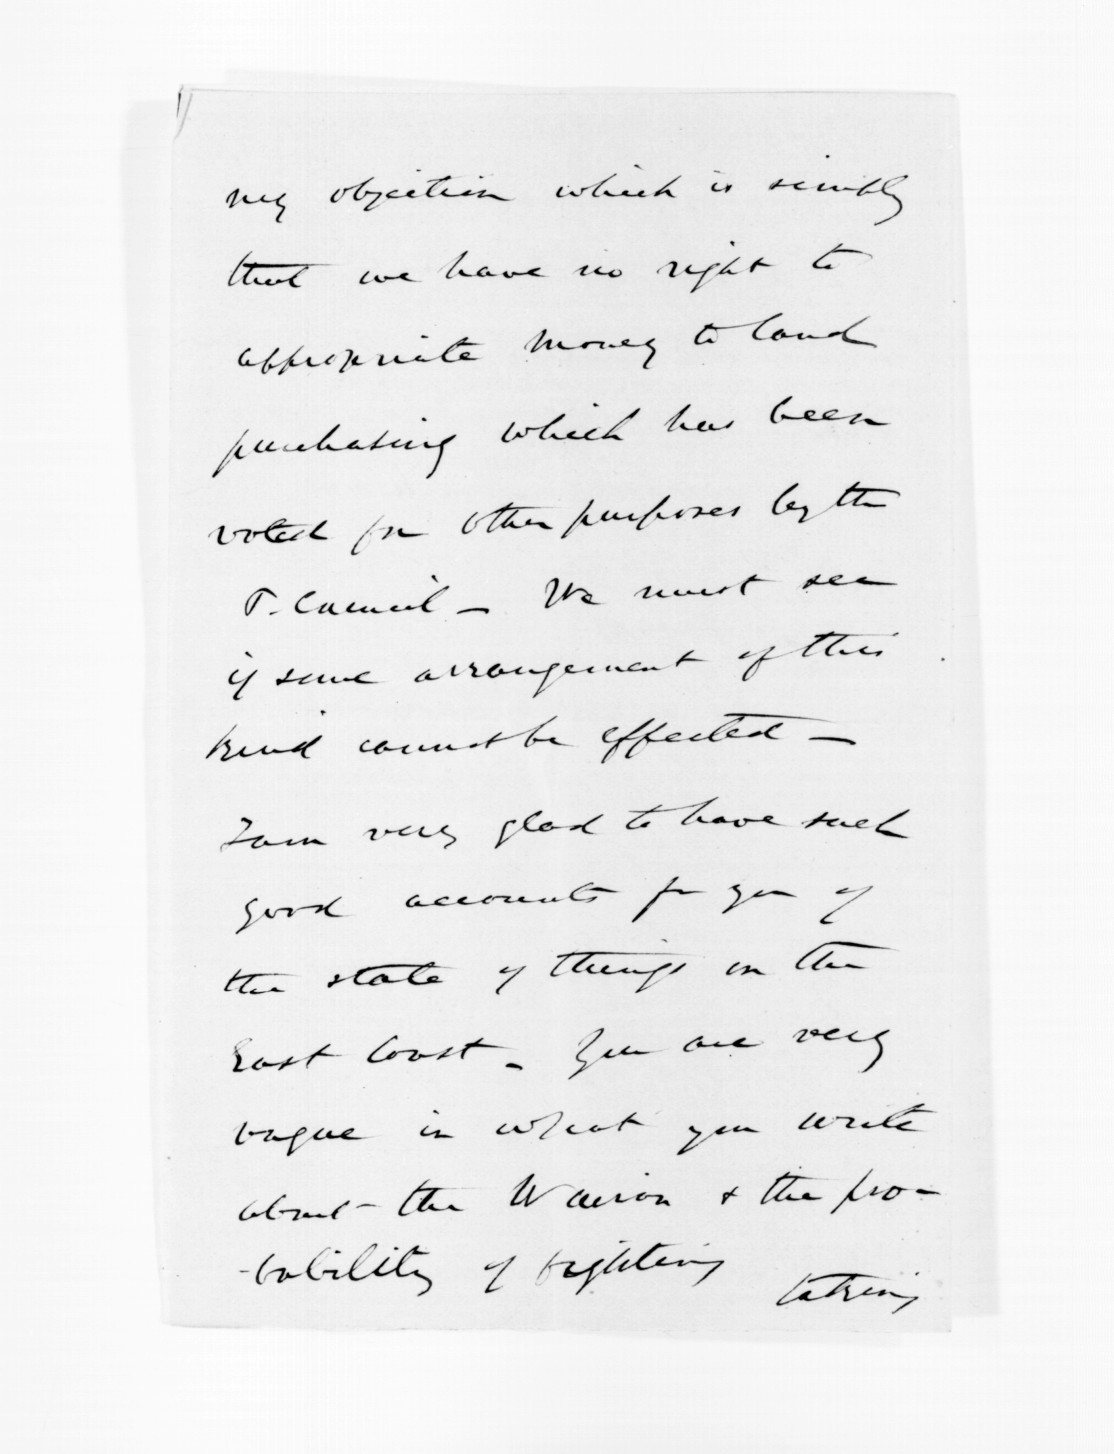 my objection which is simply
that we have no right to
appropriate money to land
purchasing which has been
voted for other purposes by the
P. Council - We must see
if some arrangement of this
kind cannot be effected -
I am very glad to have such
good accounts fr you of
the state of things on the
East Coast - You are very
vague in what you write
about the Wairoa & the pro-
-bability of fighting
taking